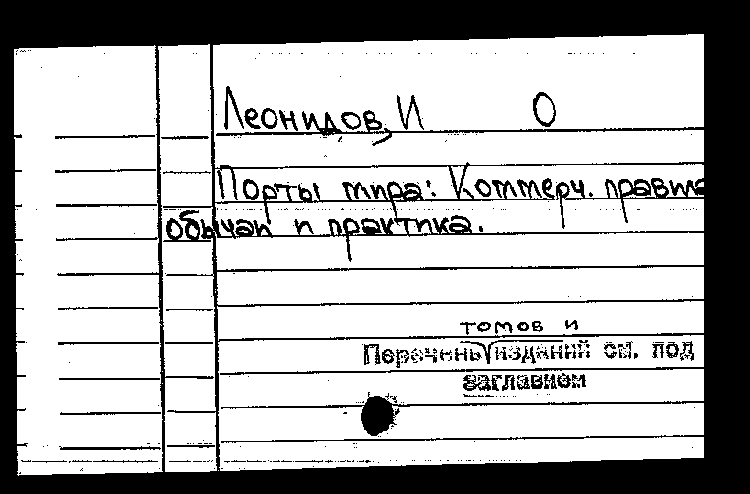 Леонидов, И О
Порты мира: Коммерч. правила
обычаи и практика.
томов и
Перечень изданий см. под
заглавием